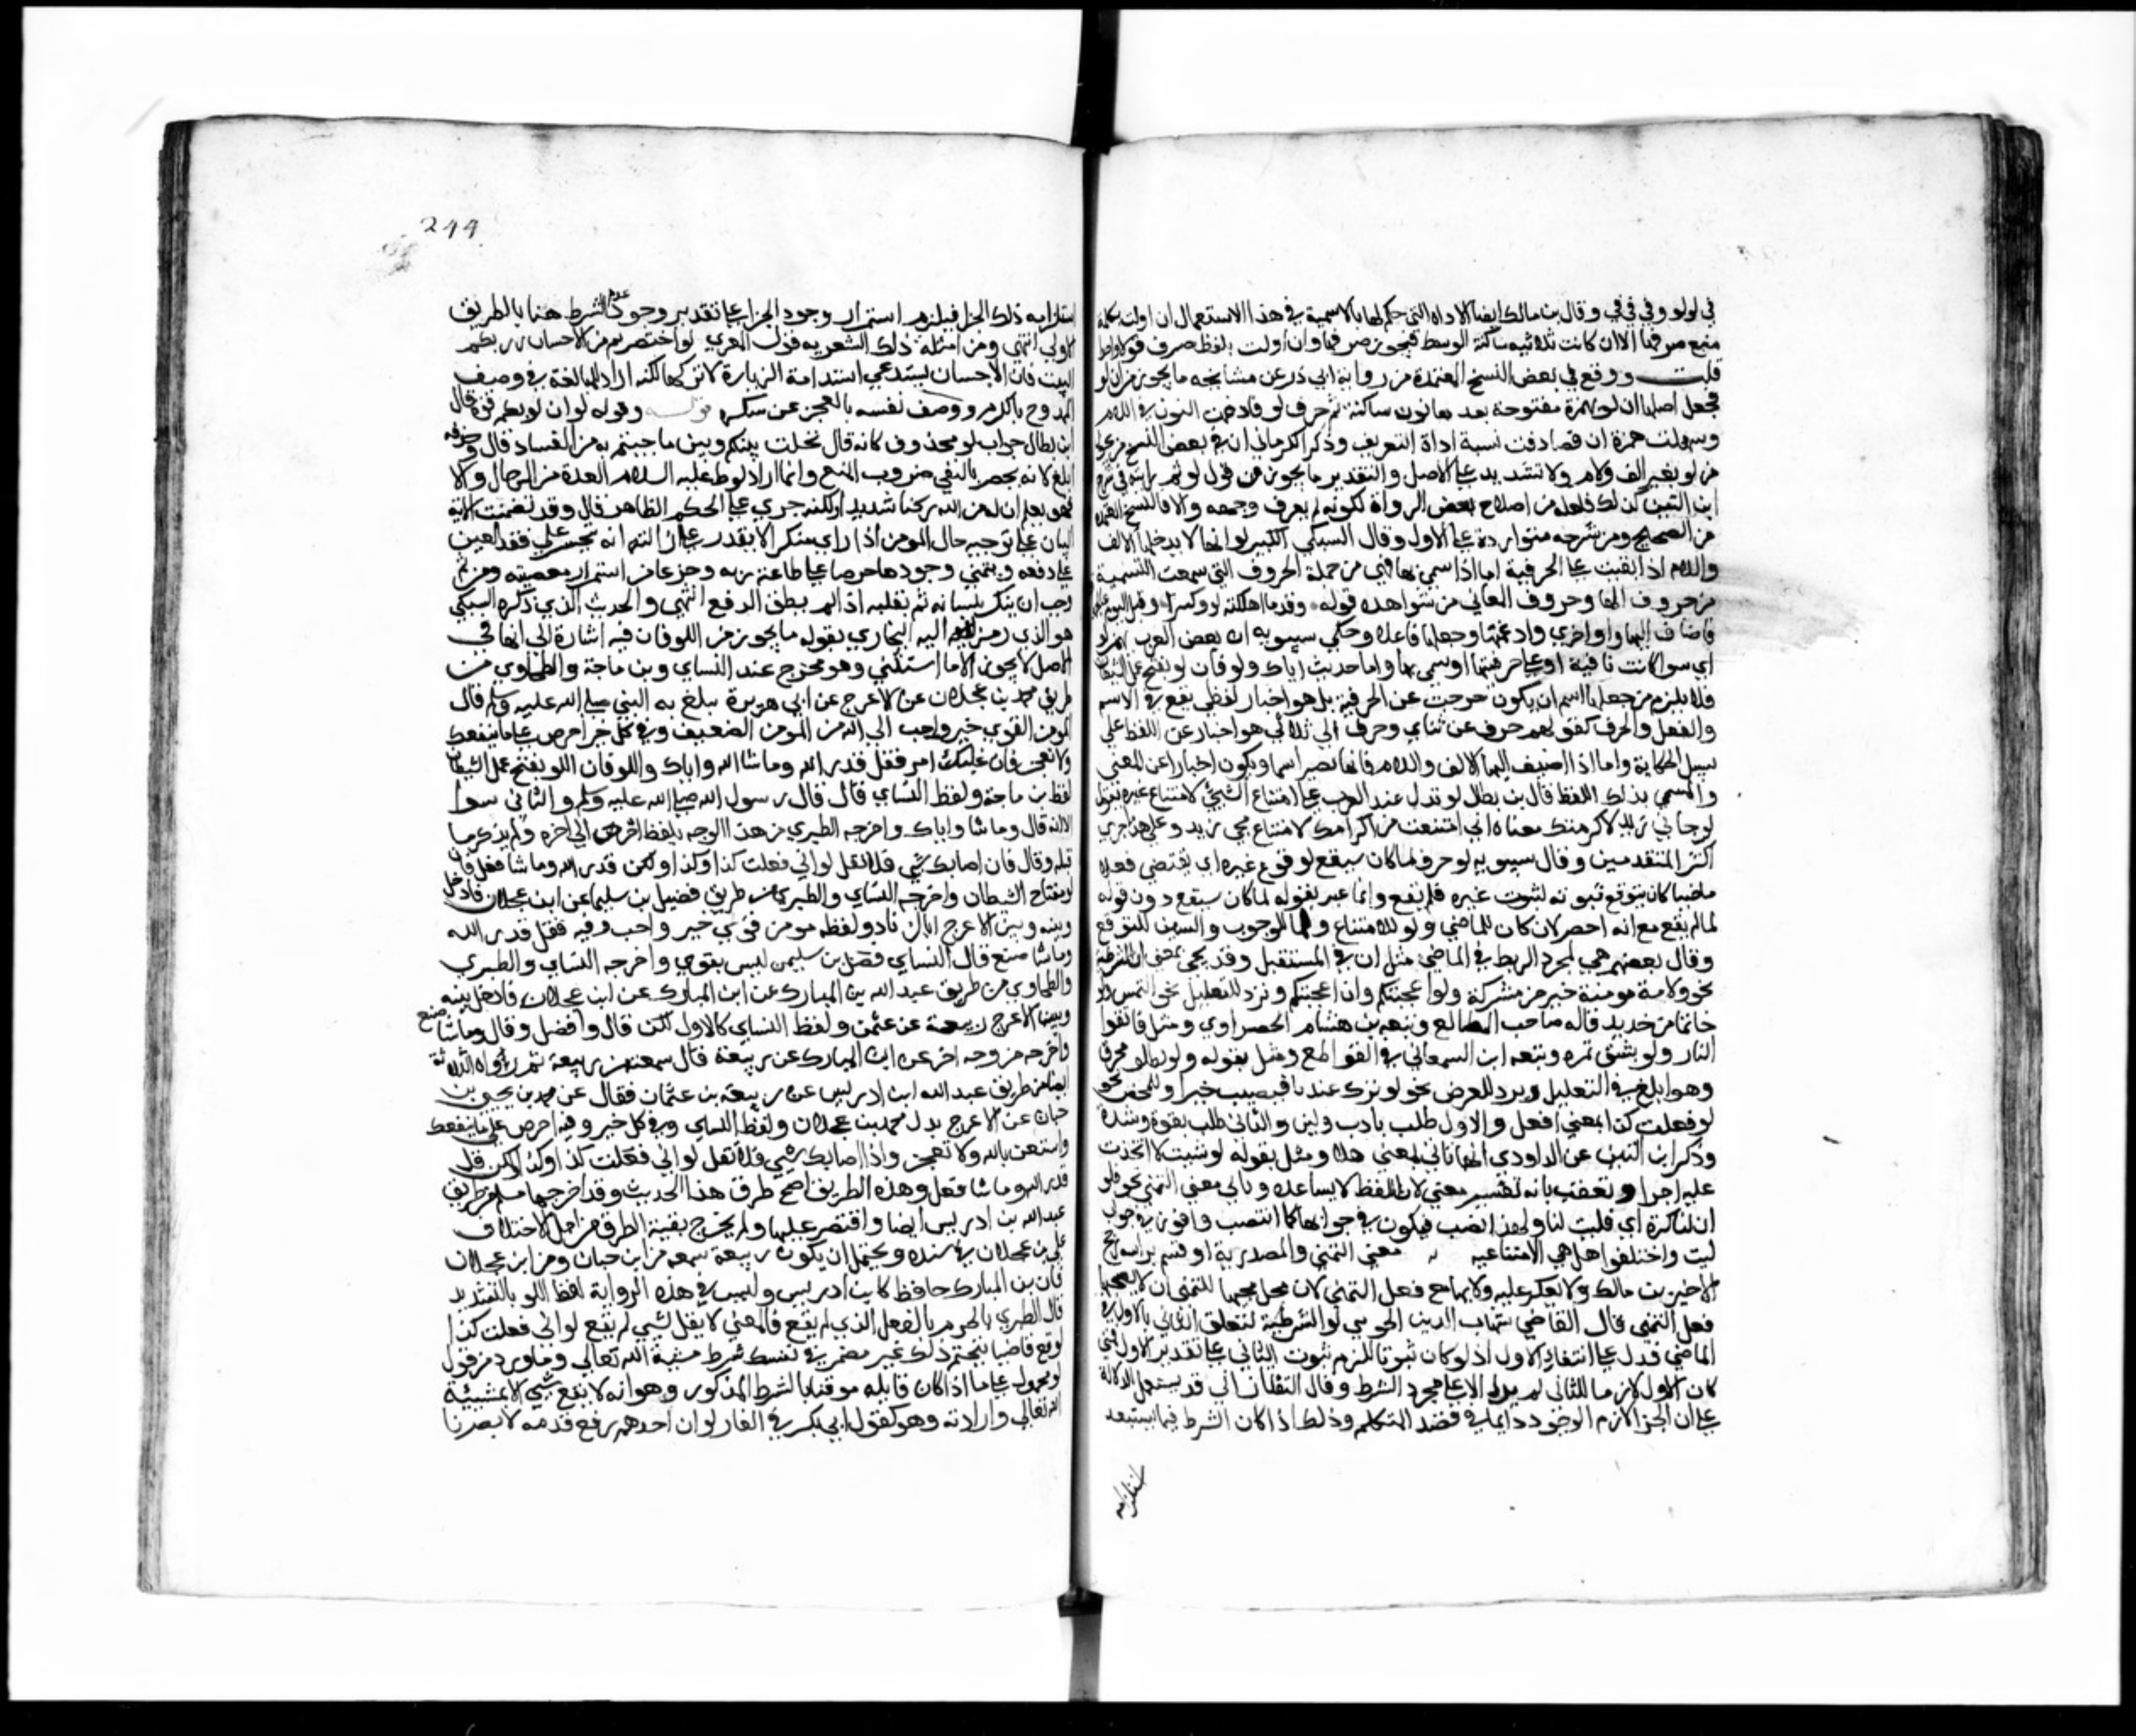 في لو لو وفي في في وقال بن مالك ايضا الاداه التي حكم لها بالاسمية في هذا الاستعمال ان اولت بكلمة
منع صرفها الا ان كانت ثلاثيه ساكنة الوسط فيجوز صرفها وان اولت بلفظ صرف قولا واحدا
قلت ووقع في بعض النسخ المعتمدة من رواية ابي ذر عن مشايخه ما يجوز من ان لو
فجعل اصلها ان لو بهمزة مفتوحة بعدها نون ساكنة ثم حرف لو فادغمت النون في اللام
وسهلت همزة ان فصارت تشبه اداة التعريف وذكر الكرماني ان في بعض النسخ
من لو بغير الف ولام ولا تشديد على الاصل والتقدير ما يجوز من قول لو ثم رايته في شرح
ابن التين كذلك فلعله من اصلاح بعض الرواة لكونه لم يعرف وجهه والا فالنسخ المعتمدة
من الصحيح ومن شرحه متواردة على الاول وقال السبكي الكبير لو انها لا يدخلها الالف
واللام اذا بقيت على الحرفية اما اذا سمي بها فهي من جملة الحروف التي سمعت التسمية
من حروف الهجا وحروف المعاني من شواهده قوله وقدما اهلكت لو وكثيرا وقبل اليوم
فاضاف اليها واوا اخري وادغمها وجعلها فاعلا وحكي سيبويه ان بعض العرب يهمز لو
اي سوا كانت باقية او علي حرفيتها او سمي بها واما حديث اياك ولو فان لو تفتح عمل الشيطان
فلا يلزم من جعلها اسم ان يكون خرجت عن الحرفية بل هو اخبار لفظي يقع في الاسم
والفعل والحرف كقولهم حرف عن ثنائي وحرف الي ثلاثي هو اخبار عن اللفظ علي
سبيل الحكاية واما اذا اضيف اليها الالف واللام فانها تصير اسما ويكون اخبارا عن المعني
والمسمي بذلك اللفظ قال بن بطال لو تدل عند العرب علي امتناع الشيئ لامتناع غيره تقول
لو جاني زيد لاكرمتك معناه اني امتنعت من اكرامك لامتناع مجي زيد وعلي هذا جري
اكثر المتقدمين وقال سيبويه لو حرف لما كان سيقع لوقوع غيره اي يقتضي فعلا
ماضيا كان يتوقع ثبوته لثبوت غيره فلم يقع وانما عبر بقوله لما كان سيقع دون قوله
لما لم يقع مع انه اخصر لان كان للماضي ولو للامتناع ولما للوجوب والسين للتوقع
وقال بعضهم هي لمجرد الربط في الماضي مثل ان في المستقبل وقد يجي بمعني ان الشرطية
نحو ولامة مومنة خير من مشركة ولو اعجبتكم وان اعجبتكم وترد للتقليل نحو التمس ولو
خاتما من حديد قاله صاحب المطالع وتبعه بن هشام الخضراوي ومثل فاتقوا
النار ولو بشق تمرة وتبعه ابن السمعاني في القواطع ومثل بقوله ولو بظلف محرق
وهو ابلغ في التقليل ويرد للعرض نحو لو تنزل عندنا فتصيب خيرا وللحض نحو
لو فعلت كذا بمعني افعل والاول طلب بادب ولين والثاني طلب بقوة وشدة
وذكر ابن التين عن الداودي انها تاتي بمعني هلا ومثل بقوله لو شيت لاتخذت
عليه اجرا وتعقب بانه تفسير معني لان اللفظ لا يساعده وتاتي معني التمني نحو فلو
ان لنا كرة اي فليت لنا ولهذا نصب فيكون في جوابها كما انتصب فافوز في جواب
ليت واختلفوا هل هي الامتناعيه معني التمني والمصدرية او قسم براسه رجح
الاخير بن مالك ولا يعكر عليه ورودها مع فعل التمني لان محل مجيها للتمني ان لا يصحبها
فعل التمني قال القاضي شهاب الدين الخويي لو الشرطية لتعلق الثاني بالاول في
الماضي فدل علي انتفا الاول اذ لو كان ثبوتا للزم ثبوت الثاني علي تقدير الاول فمتي
كان الاول لازما للثاني لم يدل الا علي مجرد الشرط وقال التفتازاني قد يستعمل للدلالة
علي ان الجزا لازم الوجود دايما في قصد المتكلم وذلك اذا كان الشرط فيما يستبعد
استلزامه
244
استلزامه ذلك الجزا فيلزم استمرار وجود الجزا علي تقدير وجود عدم الشرط هنا بالطريق
الاولي انتهي ومن امثلة ذلك الشعريه قول المعري لو اختصرتم من الاحسان زرتكم
البيت فان الاحسان يستدعي استدامة الزيارة لا تركها لكنه اراد المبالغة في وصف
الممدوح بالكرم ووصف نفسه بالعجز عن شكره قوله وقوله لو ان لي بكم قوة قال
ابن بطال جواب لو محذوف كانه قال لحلت بينكم وبين ما جيتم به من الفساد قال وحذفه
ابلغ لانه يحصر بالنفي ضروب المنع وانما اراد لوط عليه السلام العدة من الرجال والا
فهو يعلم ان له من الله ركنا شديدا ولكنه جري علي الحكم الظاهر قال وقد تضمنت الاية
البيان علي توجيه حال المومن اذا راي منكرا لا يقدر علي ازالته انه يتحسر علي فقد المعين
علي دفعه ويتمني وجوده حرصا علي طاعة ربه وجزعا من استمرار معصيته ومن ثم
وجب ان ينكر بلسانه ثم بقلبه اذا لم يطق الدفع انتهي والحديث الذي ذكره السبكي
هو الذي رمز اليه البخاري بقوله ما يجوز من اللو فان فيه اشارة الي انها في
الاصل لا يجوز الا ما استثني وهو مخرج عند النساي وبن ماجة والطحاوي من
طريق محمد بن عجلان عن الاعرج عن ابي هريرة يبلغ به النبي صلي الله عليه وسلم قال
المومن القوي خير واحب الي الله من المومن الضعيف وفي كل خير احرص علي ما ينفعك
ولا تعجز فان غلبك امر فقل قدر الله وما شا الله واياك واللو فان اللو يفتح عمل الشيطان
لفظ بن ماجة ولفظ النساي قال قال رسول الله صلي الله عليه وسلم والثاني سوا
الا انه قال وما شا واياك واخرجه الطبري من هذا الوجه بلفظ احرص الي اخره ولم يذكر ما
قبله وقال فان اصابك شي فلا تقل لو اني فعلت كذا وكذا ولكن قدر الله وما شا فعل فان
لو مفتاح الشيطان واخرجه النساي والطبري من طريق فضيل بن سليمان عن ابن عجلان فادخل
بينه وبين الاعرج ابا الزناد ولفظه مومن قوي خير واحب وفيه فقل قدر الله
وما شا صنع قال النساي فضيل بن سليمن ليس بقوي واخرجه النساي والطبري
والطحاوي من طريق عبد الله بن المبارك عن ابن المبارك عن ابن عجلان فادخل بينه
وبين الاعرج ربيعة بن عثمن ولفظ النساي كالاول لكن قال وافضل وقال وما شا صنع
واخرجه من وجه اخر عن ابن المبارك عن ربيعة قال سمعته من ربيعة ثم رواه الثلاثة
ايضا من طريق عبد الله ابن ادريس عن ربيعة بن عثمان فقال عن محمد بن يحيي بن
حبان عن الاعرج بدل محمد بن عجلان ولفظ النساي وفي كل خير وفيه احرص علي ما ينفعك
واستعن بالله ولا تعجز واذا اصابك شي فلا تقل لو اني فعلت كذا وكذا ولكن قل
قدر الله وما شا فعل وهذه الطريق اصح طرق هذا الحديث وقد اخرجها مسلم من طريق
عبد الله بن ادريس ايضا واقتصر عليها ولم يخرج بقية الطرق من اجل الاختلاف
علي بن عجلان في سنده ويحتمل ان يكون ربيعة سمعه من ابن حبان ومن ابن عجلان
فان بن المبارك حافظ كابن ادريس وليس في هذه الرواية لفظ اللو بالتشديد
قال الطبري بالفعل الذي لم يقع فالمعني لا يقل لشيي لم يقع لو اني فعلت كذا
لوقع قاضيا بتحتم ذلك غير مضمر في نفسك شرط مشية الله تعالي وما ورد من قول
لو محمول علي ما اذا كان قايله موقنا بالشرط المذكور وهو انه لا يقع شيي الا بمشيئة
الله تعالي وارادته وهو كقول ابي بكر في الغار لو ان احدهم رفع قدمه لابصرنا